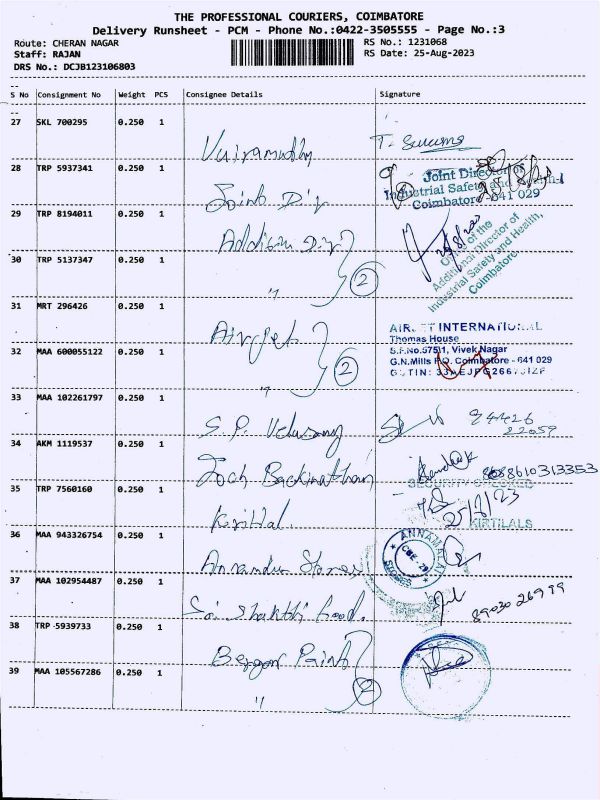 THE PROFESSIONAL COURIERS, COIMBATORE
Delivery Runsheet - PCM - Phone No.:0422-3505555 - Page No.:3
Route: CHERAN NAGAR RS No.: 1231068
Staff: RAJAN RS Date: 25-Aug-2023
DRS No.: DCJB123106803
--
S No Consignment No Weight PCS Consignee Details Signature
--
27 SKL 700295 0.250 1
28 TRP 5937341 0.250 1 Joint Dir
Joint Director of
Industrial Safety and Health
Coimbatore - 641 029
29 TRP 8194011 0.250 1
Office of the
Additional Director of
Industrial Safety and Health,
Coimbatore
30 TRP 5137347 0.250 1 " 2
31 MRT 296426 0.250 1 Airjet
AIRJET INTERNATIONAL
Thomas House
S.F.No.575/1, Vivek Nagar
G.N.Mills P.O. Coimbatore - 641 029
32 MAA 600055122 0.250 1 " 2
33 MAA 102261797 0.250 1 S.P. Velusamy
34 AKM 1119537 0.250 1
SECURITY CHECKED
35 TRP 7560160 0.250 1 Kirtilal. 25/8/23
KIRTILALS
36 MAA 943326754 0.250 1 Stores
ANNAMALAI STORES
37 MAA 102954487 0.250 1 Sri Shakthi food.
38 TRP 5939733 0.250 1 Berger Paint
39 MAA 105567286 0.250 1 " 2